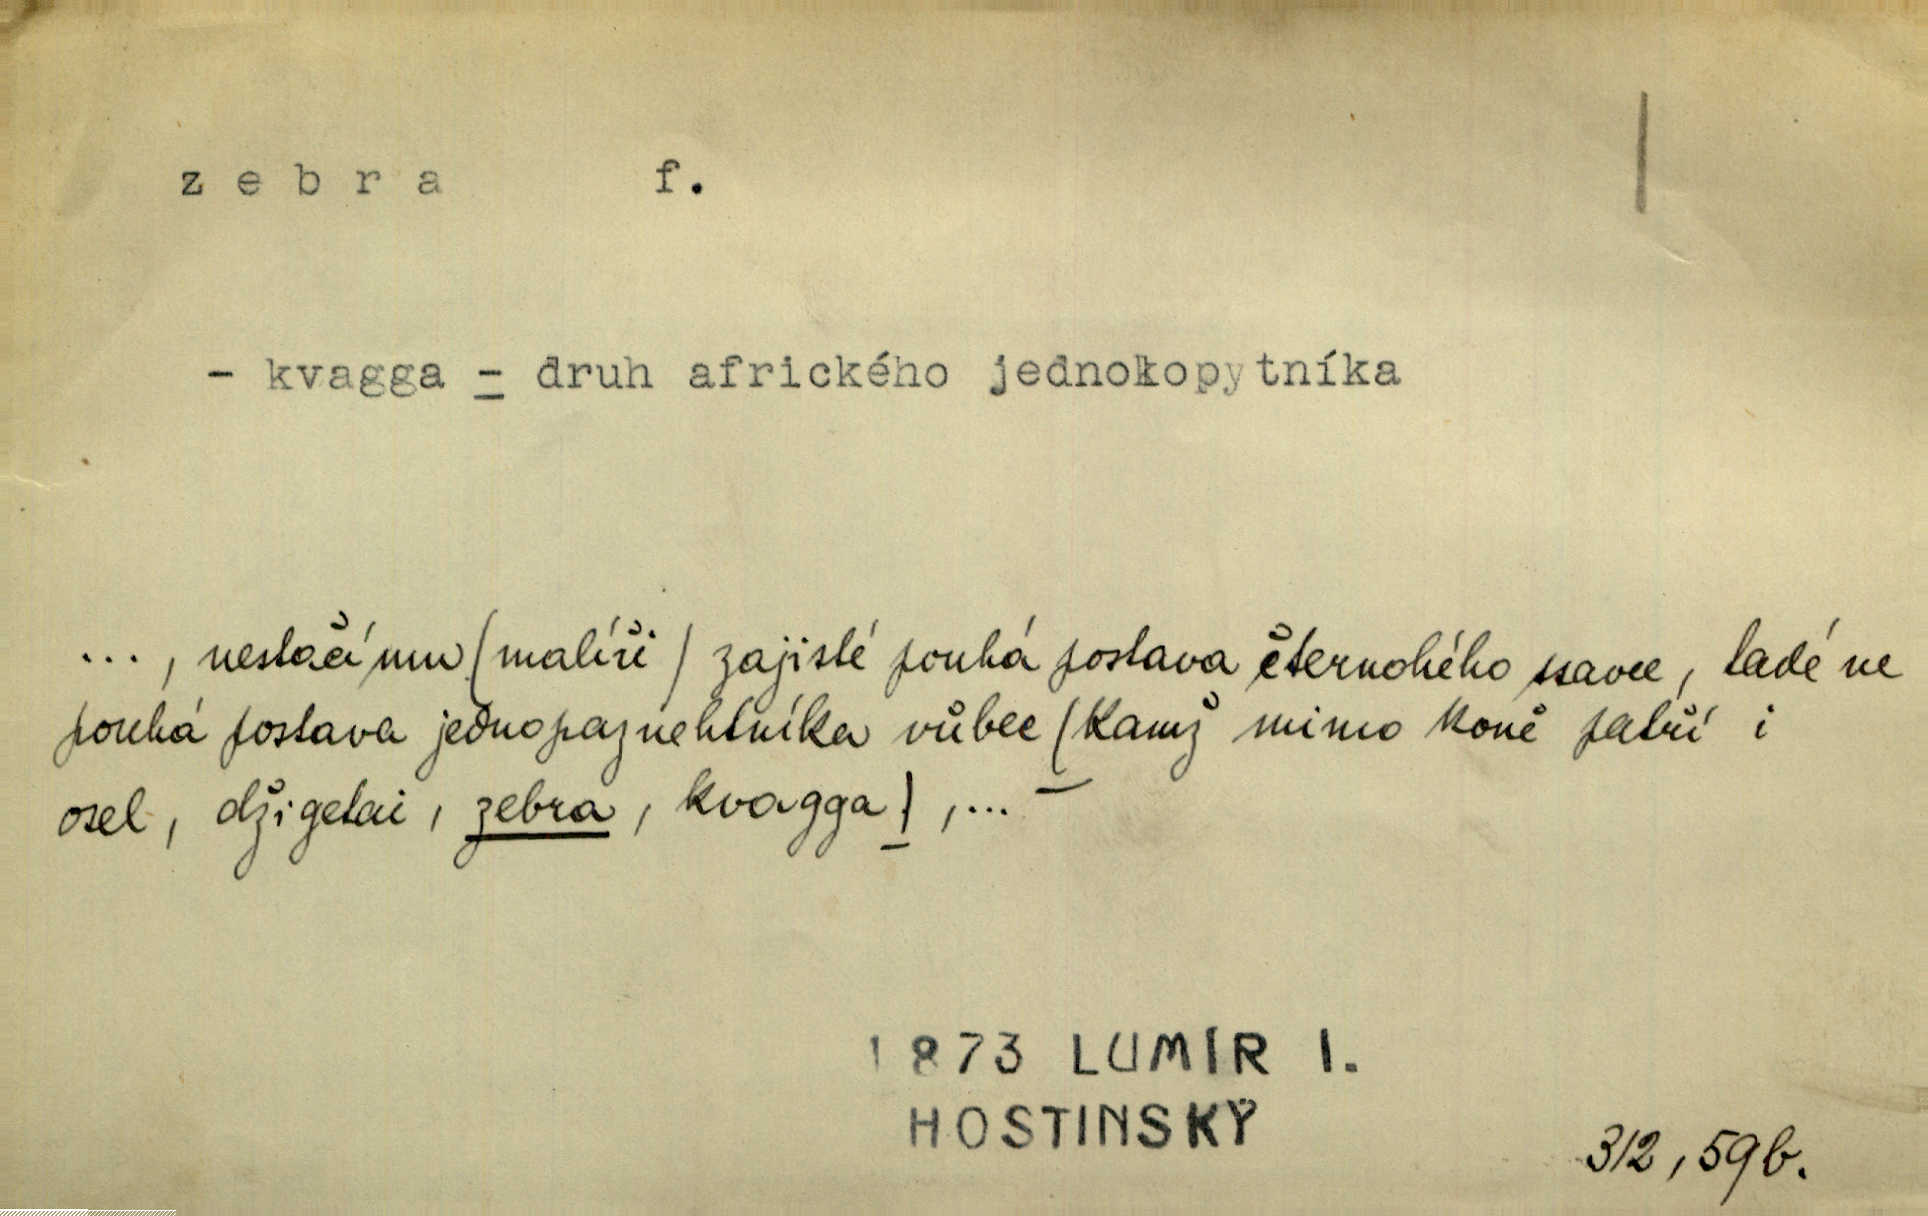 zebra f.
- kvagga = druh afrického jednokopytníka
..., nestačí mu (malíři) zajisté pouhá postava čternohého ssavce, tadé ne
pouhá postava jednopaznehtníka vůbec (kamž mimo koně patří i
osel, džigetai, zebra, kvagga), ...
1873 LUMÍR I.
HOSTINSKÝ
312, 59b.